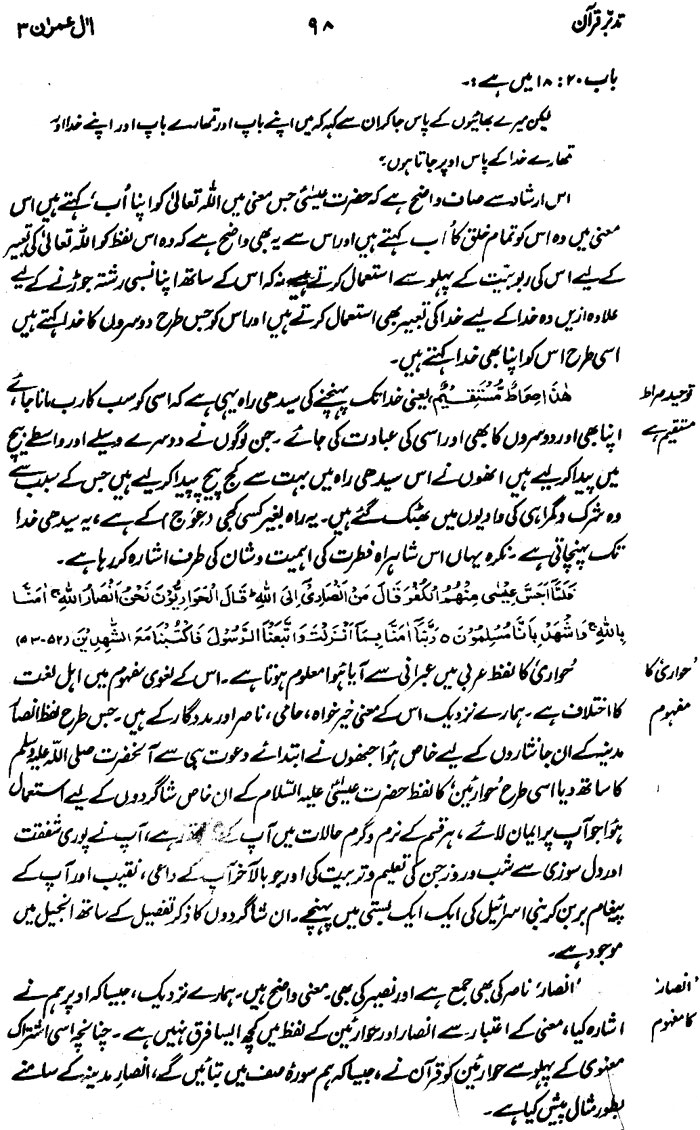 تدبّر قرآن ۹۸ اٰل عمرٰن ۳
باب ۲۰: ۱۸ میں ہے:۔
لیکن میرے بھائیوں کے پاس جا کر ان سے کہہ کہ میں اپنے باپ اور تمھارے باپ اور اپنے خدا اور
تمھارے خدا کے پاس اوپر جاتا ہوں؛
اس ارشاد سے صاف واضح ہے کہ حضرت عیسیٰؑ جس معنی میں اللہ تعالیٰ کو اپنا 'اَب' کہتے ہیں اس
معنی میں وہ اس کو تمام خلق کا 'اَب' کہتے ہیں اور اس سے یہ بھی واضح ہے کہ وہ اس لفظ کو اللہ تعالیٰ کی تعبیر
کے لیے اس کی ربوبیّت کے پہلو سے استعمال کرتے ہیں نہ کہ اس کے ساتھ اپنا نسبی رشتہ جوڑنے کے لیے
علاوہ ازیں وہ خدا کے لیے خدا کی تعبیر بھی استعمال کرتے ہیں اور اس کو جس طرح دوسروں کا خدا کہتے ہیں
اسی طرح اس کو اپنا بھی خدا کہتے ہیں۔
توحید صراط
مستقیم ہے
ھٰذَا صِرَاطٌ مُّسْتَقِیْمٌ، یعنی خدا تک پہنچنے کی سیدھی راہ یہی ہے کہ اسی کو سب کا رب مانا جائے،
اپنا بھی اور دوسروں کا بھی اور اسی کی عبادت کی جائے۔ جن لوگوں نے دوسرے وسیلے اور واسطے بیچ
میں پیدا کر لیے ہیں انھوں نے اس سیدھی راہ میں بہت سے کج پیچ پیدا کر لیے ہیں جس کے سبب سے
وہ شرک و گمراہی کی وادیوں میں بھٹک گئے ہیں۔ یہ راہ بغیر کسی کجی (عِوَج) کے ہے، یہ سیدھی خدا
تک پہنچاتی ہے۔ نکرہ یہاں اس شاہراہِ فطرت کی اہمیت و شان کی طرف اشارہ کر رہا ہے۔
فَلَمَّآ اَحَسَّ عِیْسٰی مِنْھُمُ الْکُفْرَ قَالَ مَنْ اَنْصَارِیْٓ اِلَی اللّٰہِ ؕ قَالَ الْحَوَارِیُّوْنَ نَحْنُ اَنْصَارُ اللّٰہِ ۚ اٰمَنَّا
بِاللّٰہِ ۚ وَاشْھَدْ بِاَنَّا مُسْلِمُوْنَ ۝ رَبَّنَآ اٰمَنَّا بِمَآ اَنْزَلْتَ وَاتَّبَعْنَا الرَّسُوْلَ فَاکْتُبْنَا مَعَ الشّٰھِدِیْنَ (۵۲-۵۳)
'حواری' کا
مفہوم
'حواری' کا لفظ عربی میں عبرانی سے آیا ہوا معلوم ہوتا ہے۔ اس کے لغوی مفہوم میں اہل لغت
کا اختلاف ہے۔ ہمارے نزدیک اس کے معنی خیر خواہ، حامی، ناصر اور مددگار کے ہیں۔ جس طرح لفظ انصار
مدینہ کے ان جانثاروں کے لیے خاص ہوا جنھوں نے ابتدائے دعوت ہی سے آنحضرت صلی اللہ علیہ وسلم
کا ساتھ دیا اسی طرح 'حوارئین' کا لفظ حضرت عیسیٰ علیہ السّلام کے ان خاص شاگردوں کے لیے استعمال
ہوا جو آپ پر ایمان لائے، ہر قسم کے نرم و گرم حالات میں آپ کے رہے، آپ نے پوری شفقت
اور دل سوزی سے شب و روز جن کی تعلیم و تربیت کی اور جو بالآخر آپ کے داعی، نقیب اور آپ کے
پیغام بر بن کر بنی اسرائیل کی ایک ایک بستی میں پہنچے۔ ان شاگردوں کا ذکر تفصیل کے ساتھ انجیل میں
موجود ہے۔
'انصار'
کا مفہوم
'انصار' ناصر کی بھی جمع ہے اور نصیر کی بھی۔ معنی واضح ہیں۔ ہمارے نزدیک، جیسا کہ اوپر ہم نے
اشارہ کیا، معنی کے اعتبار سے انصار اور حوارئین کے لفظ میں کچھ ایسا فرق نہیں ہے۔ چنانچہ اسی اشتراک
معنوی کے پہلو سے حوارئین کو قرآن نے، جیسا کہ ہم سورۂ صف میں بتائیں گے، انصارِ مدینہ کے سامنے
بطور مثال پیش کیا ہے۔